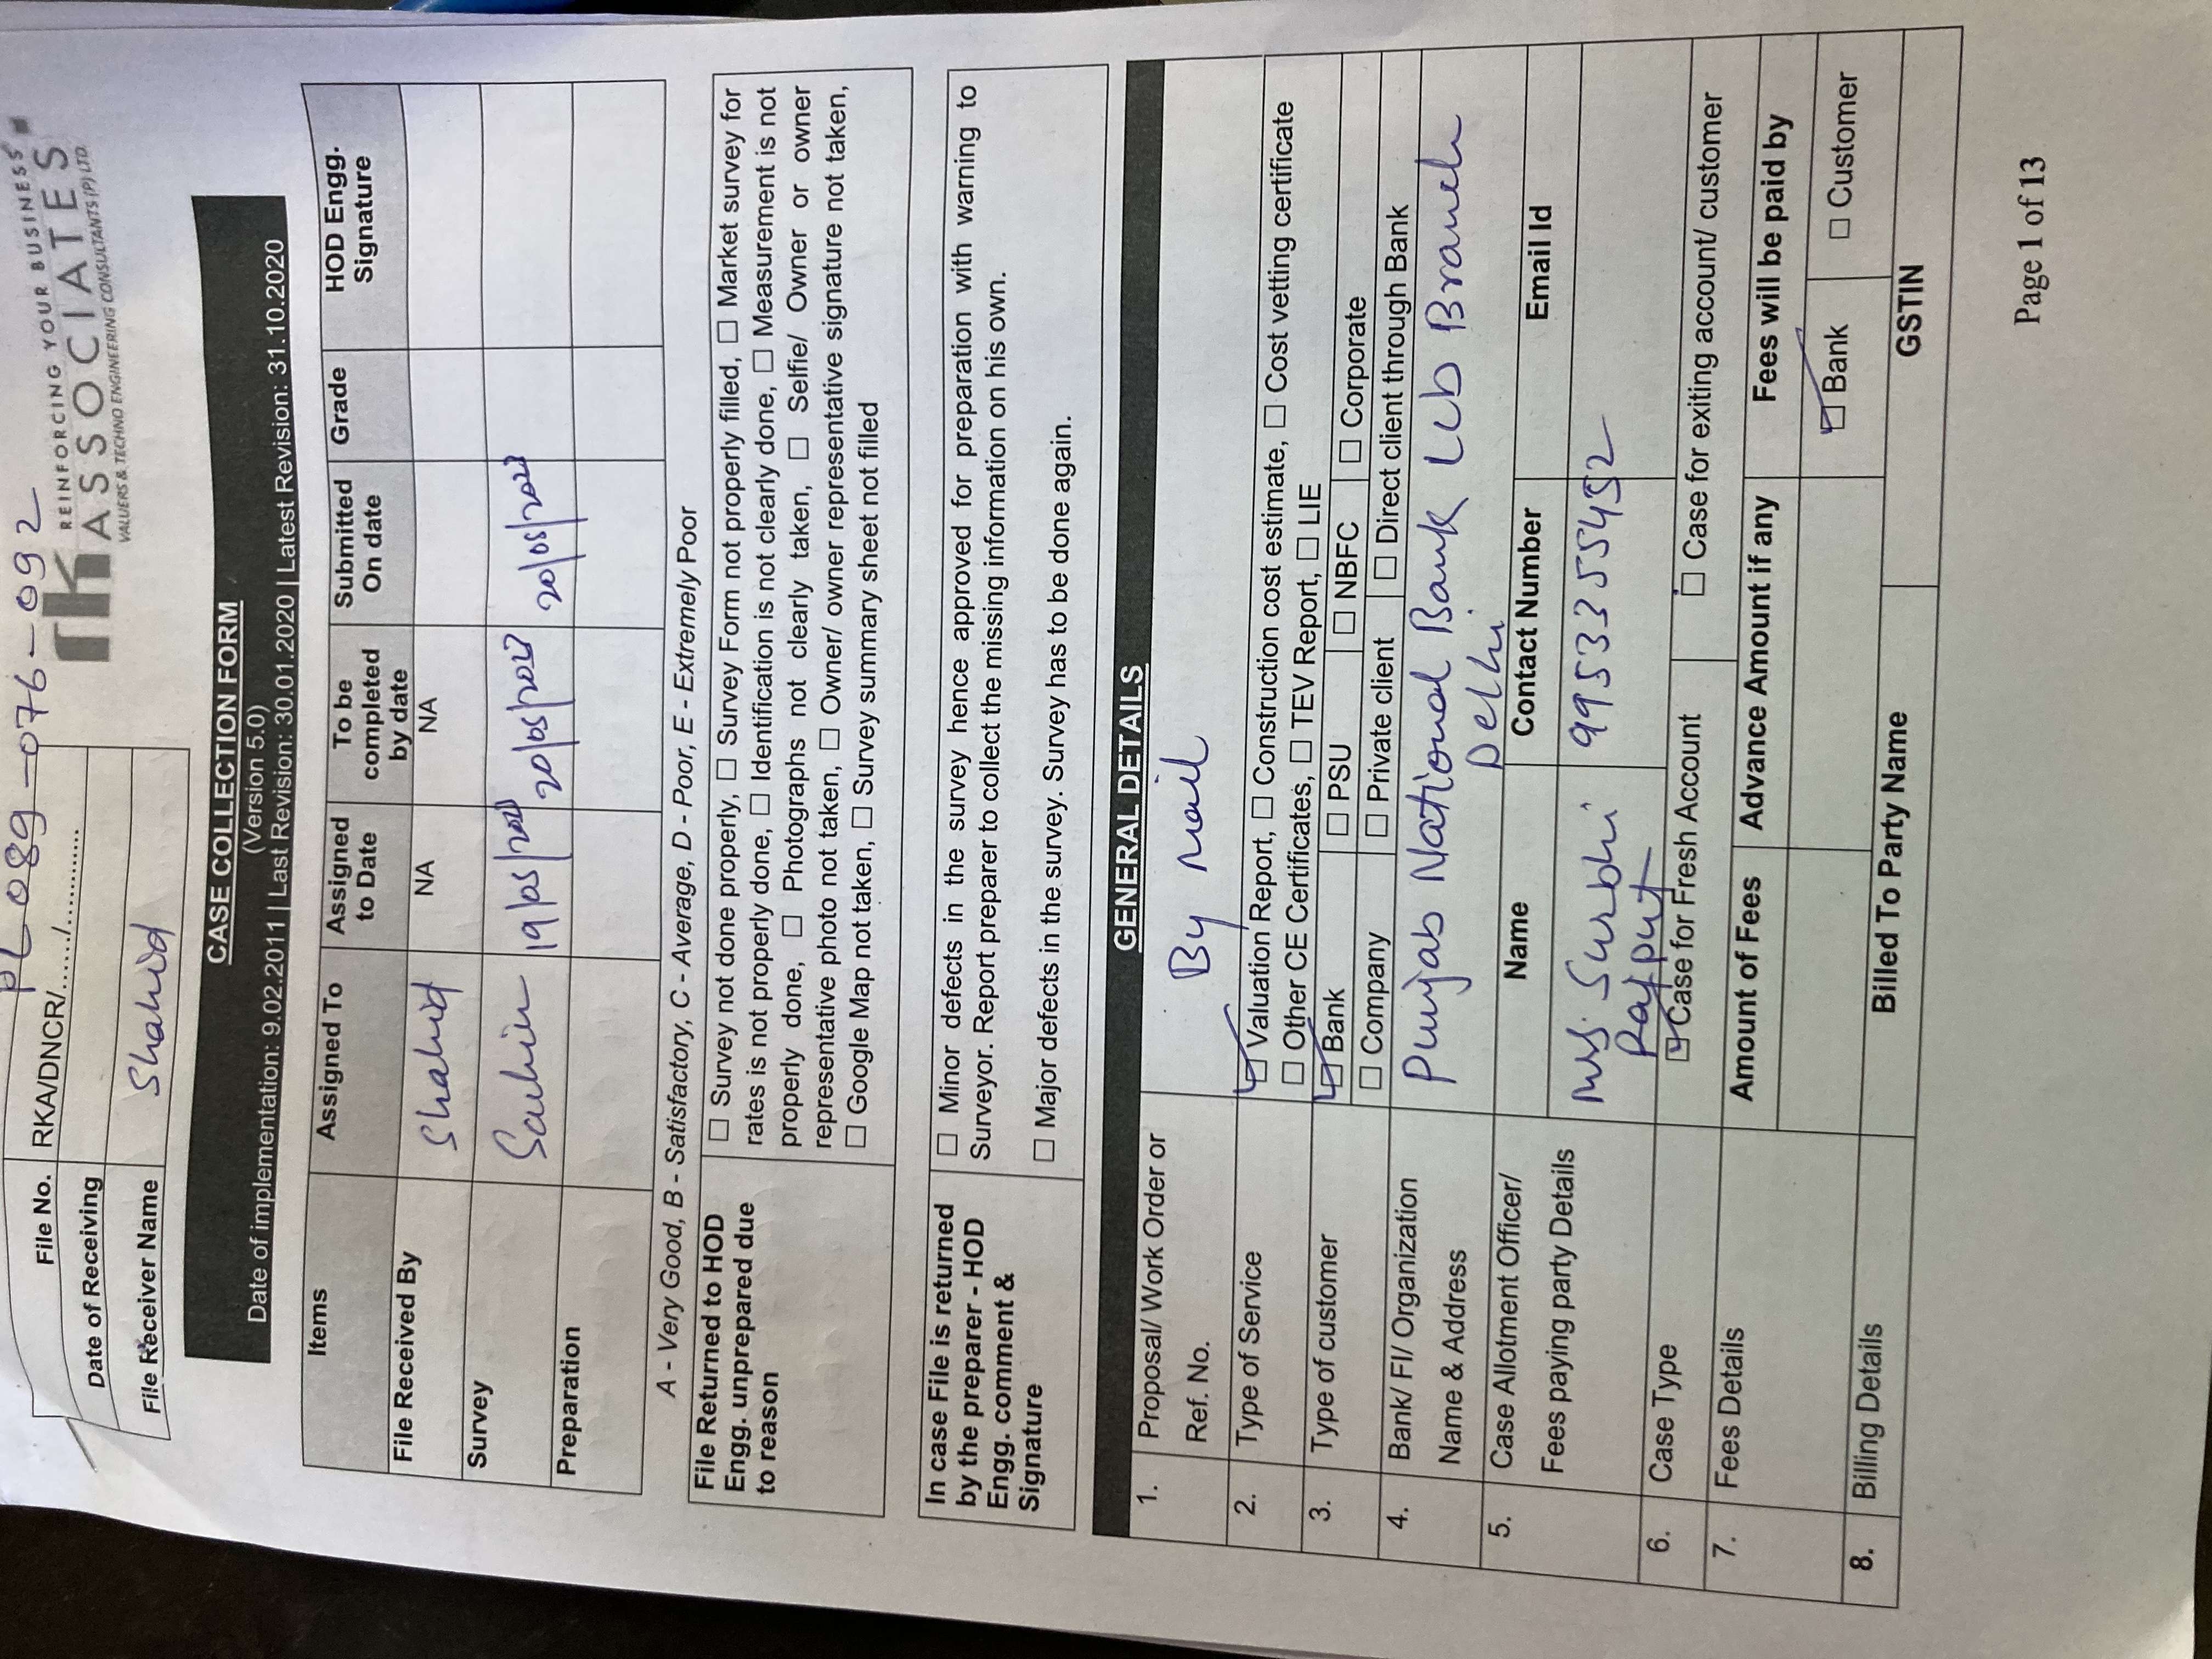 PL089-076-092
File No. RKA/DNCR/....../..........
Date of Receiving
File Receiver Name Shahid
REINFORCING YOUR BUSINESS
rk ASSOCIATES
VALUERS & TECHNO ENGINEERING CONSULTANTS (P) LTD.
CASE COLLECTION FORM
(Version 5.0)
Date of implementation: 9.02.2011 | Last Revision: 30.01.2020 | Latest Revision: 31.10.2020
Items Assigned To Assigned to Date To be completed by date Submitted On date Grade HOD Engg. Signature
File Received By Shahid NA NA
Survey Sachin 19/05/2023 20/05/2023 20/05/2023
Preparation
A - Very Good, B - Satisfactory, C - Average, D - Poor, E - Extremely Poor
File Returned to HOD
Engg. unprepared due
to reason
☐ Survey not done properly, ☐ Survey Form not properly filled, ☐ Market survey for
rates is not properly done, ☐ Identification is not clearly done, ☐ Measurement is not
properly done, ☐ Photographs not clearly taken, ☐ Selfie/ Owner or owner
representative photo not taken, ☐ Owner/ owner representative signature not taken,
☐ Google Map not taken, ☐ Survey summary sheet not filled
In case File is returned
by the preparer - HOD
Engg. comment &
Signature
☐ Minor defects in the survey hence approved for preparation with warning to
Surveyor. Report preparer to collect the missing information on his own.
☐ Major defects in the survey. Survey has to be done again.
GENERAL DETAILS
1. Proposal/ Work Order or
Ref. No.
By mail
2. Type of Service
☑ Valuation Report, ☐ Construction cost estimate, ☐ Cost vetting certificate
☐ Other CE Certificates, ☐ TEV Report, ☐ LIE
3. Type of customer
☑ Bank ☐ PSU ☐ NBFC ☐ Corporate
☐ Company ☐ Private client ☐ Direct client through Bank
4. Bank/ FI/ Organization
Name & Address
Punjab National Bank LCB Branch
Delhi
5. Case Allotment Officer/
Fees paying party Details
Name Contact Number Email Id
Ms. Surbhi 9953355452
Rajput
6. Case Type ☑ Case for Fresh Account ☐ Case for exiting account/ customer
7. Fees Details Amount of Fees Advance Amount if any Fees will be paid by
☑ Bank ☐ Customer
8. Billing Details Billed To Party Name GSTIN
Page 1 of 13